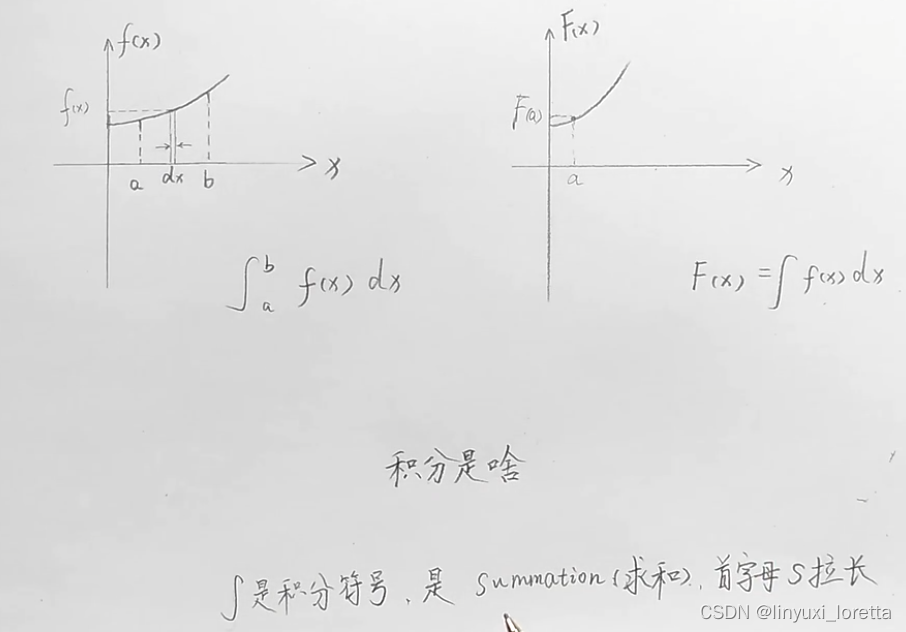 f(x)
F(x)
f(x)
F(a)
a dx b x
a x
∫_a^b f(x) dx
F(x) = ∫ f(x) dx
积分是啥
∫是积分符号,是 Summation(求和),首字母S拉长
CSDN @linyuxi_loretta